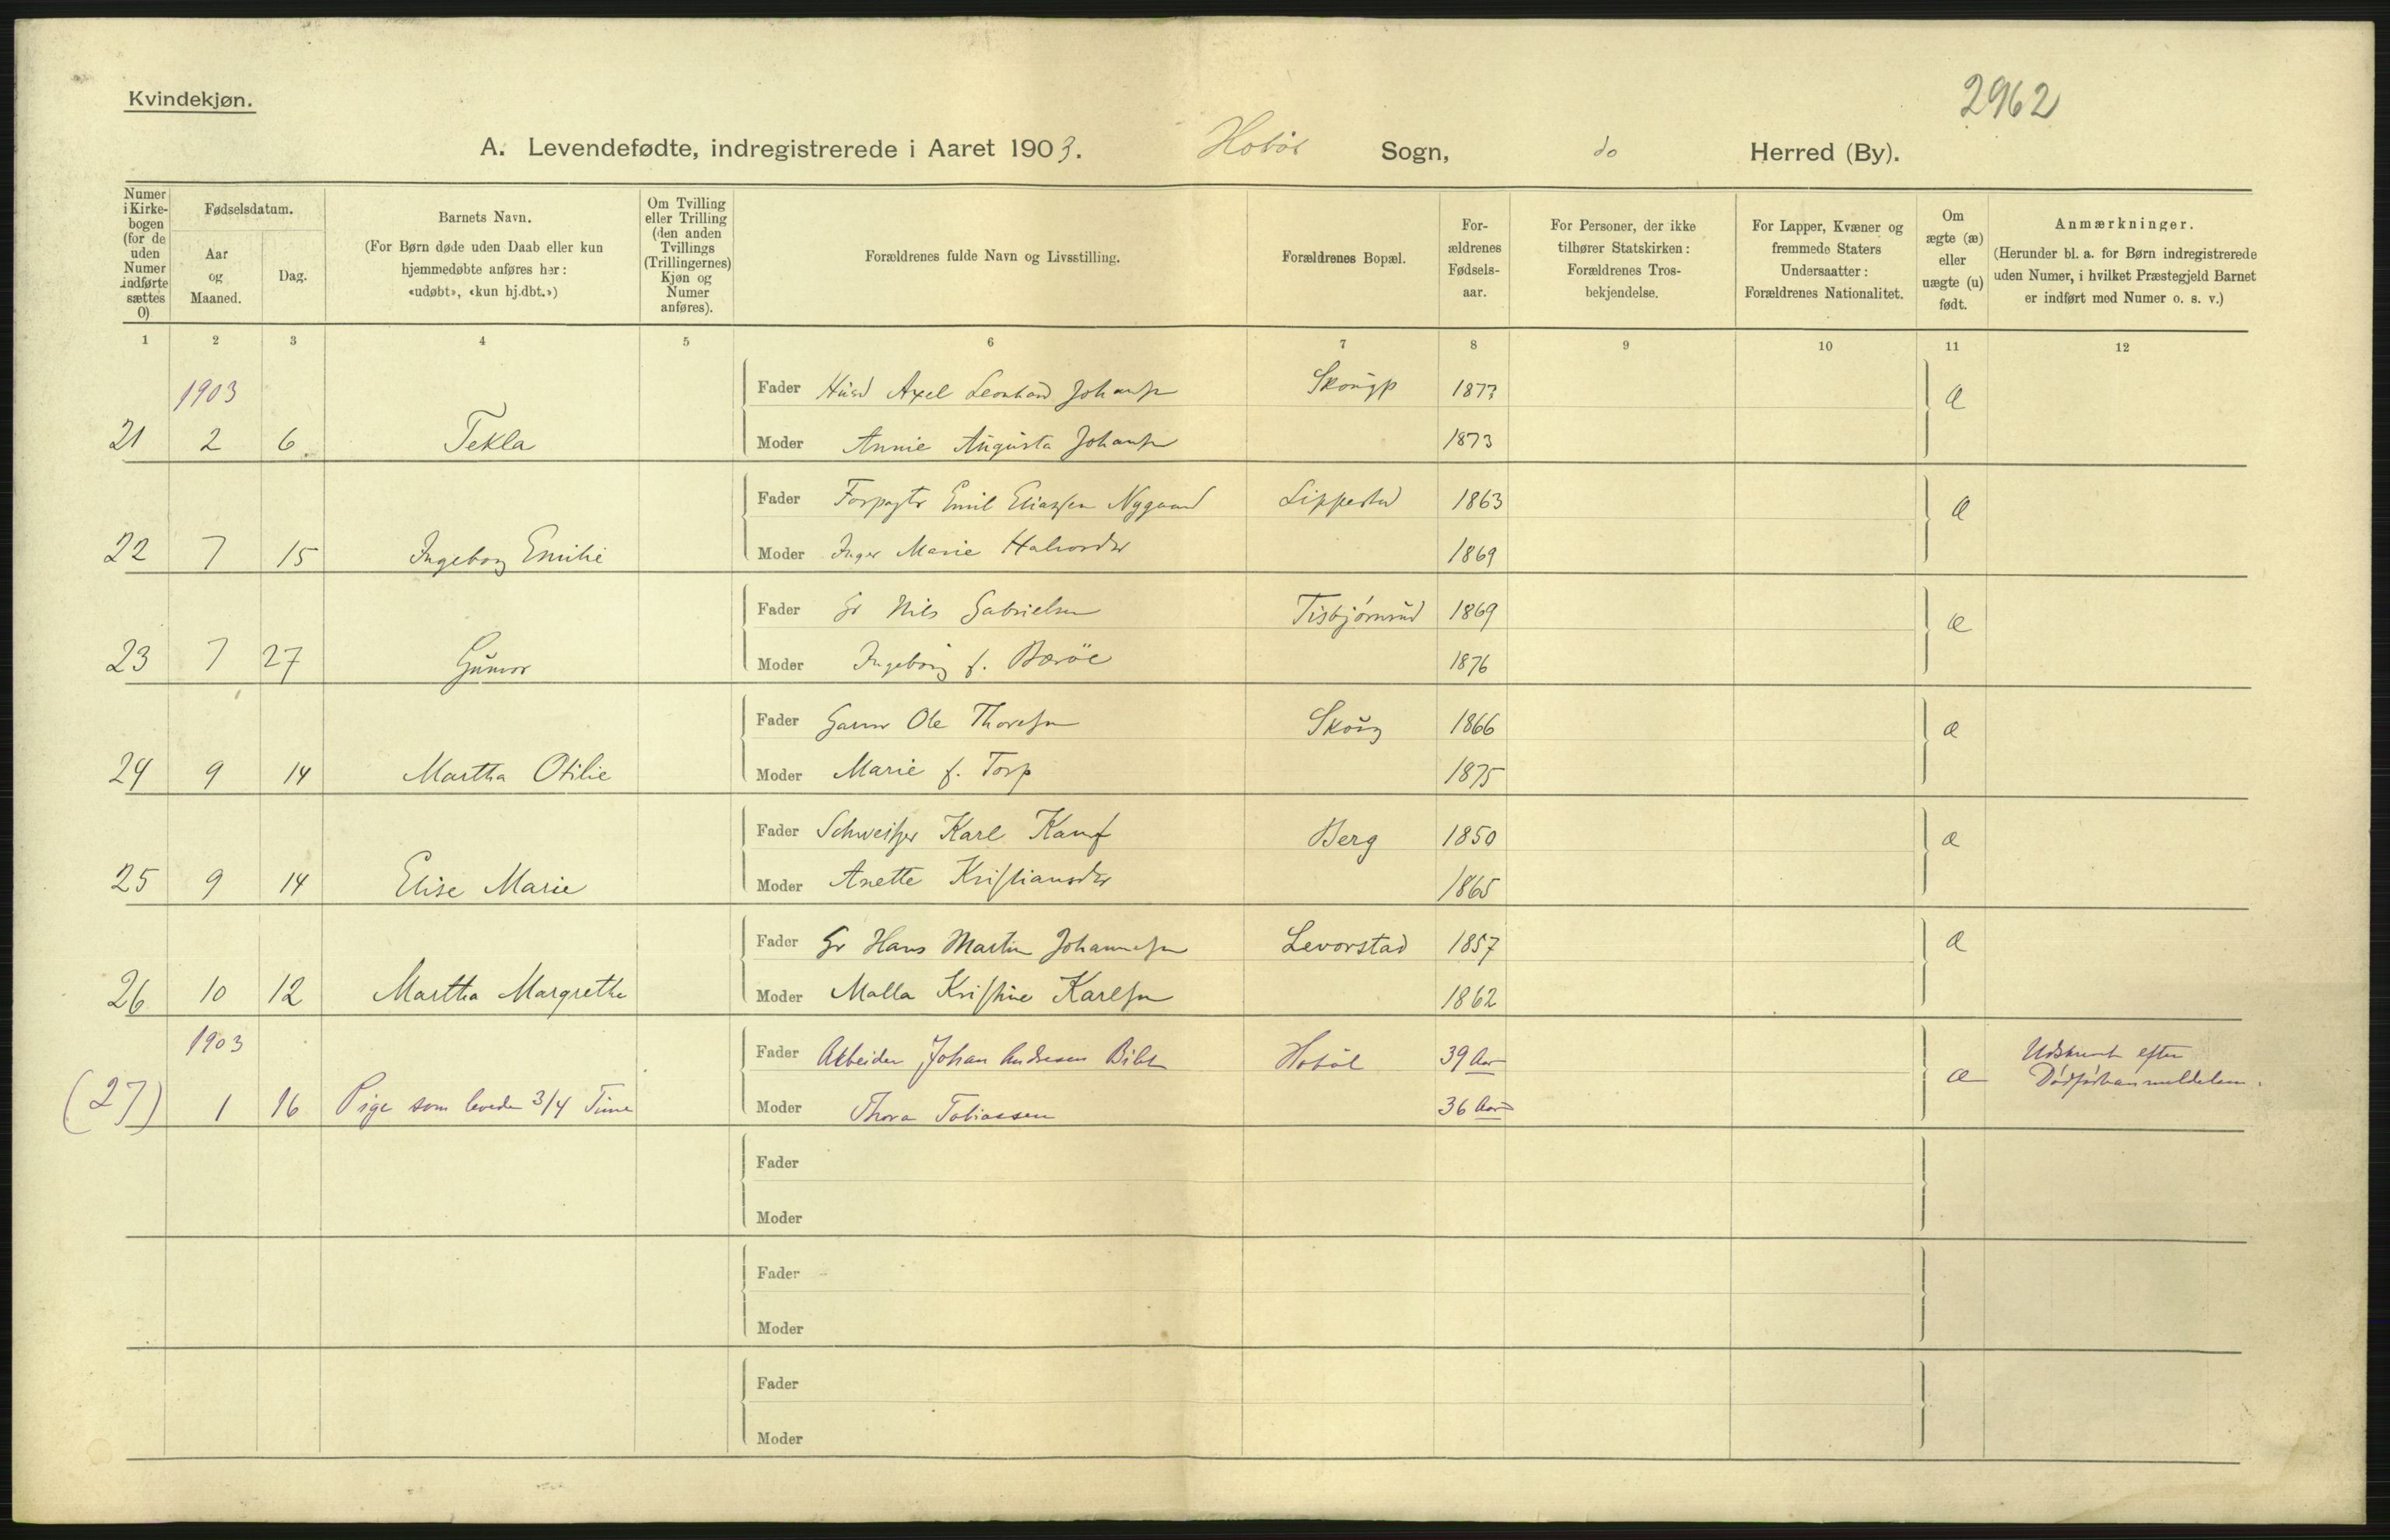 Kvindekjøn.
2962
A. Levendefødte, indregistrerede i Aaret 1903. Hobøl Sogn, do Herred (By).
Numer i Kirkebogen (for de uden Numer indførte sættes 0)
Fødselsdatum.
Aar og Maaned.
Dag.
Barnets Navn.
(For Børn døde uden Daab eller kun hjemmedøbte anføres her: «udøbt», «kun hj.dbt.»)
Om Tvilling eller Trilling (den anden Tvillings (Trillingernes) Kjøn og Numer anføres).
Forældrenes fulde Navn og Livsstilling.
Forældrenes Bopæl.
For-ældrenes Fødsels-aar.
For Personer, der ikke tilhører Statskirken: Forældrenes Tros-bekjendelse.
For Lapper, Kvæner og fremmede Staters Undersaatter: Forældrenes Nationalitet.
Om ægte (æ) eller uægte (u) født.
Anmærkninger.
(Herunder bl. a. for Børn indregistrerede uden Numer, i hvilket Præstegjeld Barnet er indført med Numer o. s. v.)
1 2 3 4 5 6 7 8 9 10 11 12
1903
Fader Husd Axel Leonhard Johansen 1873 æ
21 2 6 Tekla
Moder Annie Augusta Johansen 1873
Fader Forpagtr Emil Eliassen Nygaard Lippestad 1863 æ
22 7 15 Ingeborg Emilie
Moder Inger Marie Halvorsdtr 1869
Fader Gr Nils Gabrielsen Tisbjørnrud 1869 æ
23 7 27 Gunvor
Moder Ingeborg f. Borøe 1876
Fader Ole Thoresen Skoug 1866 æ
24 9 14 Martha Otilie
Moder Marie f. Torp 1875
Fader Schweitzer Karl Kamf Berg 1850 æ
25 9 14 Elise Marie
Moder Anette Kristiansdtr 1865
Fader Gr Hans Martin Johannesen Levorstad 1857 æ
26 10 12 Martha Margrethe
Moder Malla Kristine Karlsen 1862
1903
Fader Arbeider Johan Andresen Hobøl 39 Aar æ
(27) 1 16 Pige som levede 3/4 Time
Moder Thora Tobiassen 36 Aar
efter
Fader
Moder
Fader
Moder
Fader
Moder